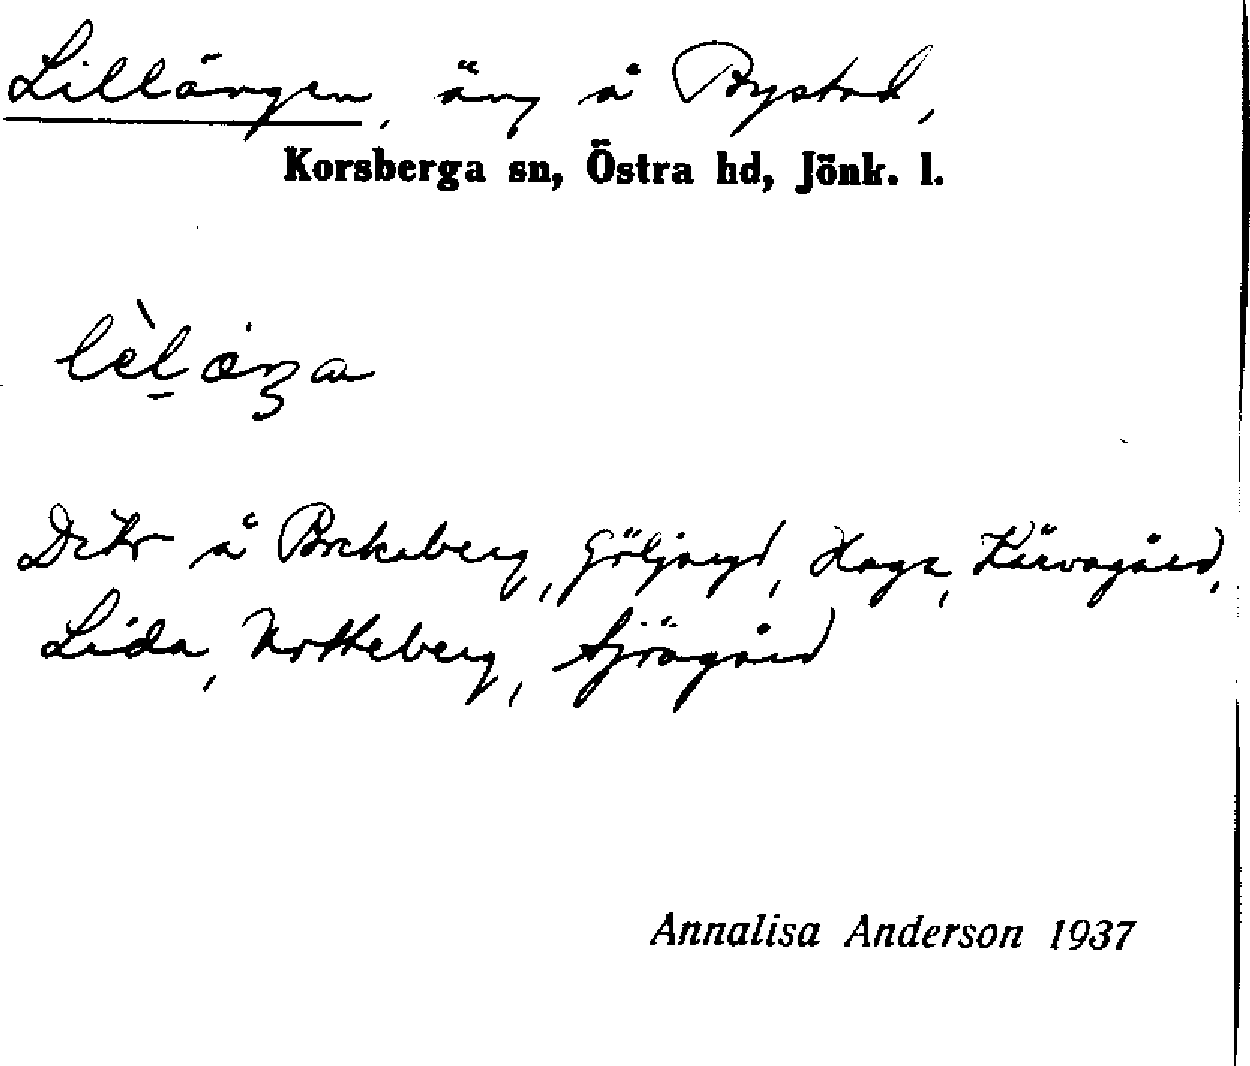 Lillängen, äng å Bystad,
Korsberga sn, Östra hd, Jönk. l.
lèlæŋa
D:o å Bockaberg, Göljaryd, Haga, Kärvagård,
Lida, Notteberg, Sjögård
Annalisa Anderson 1937